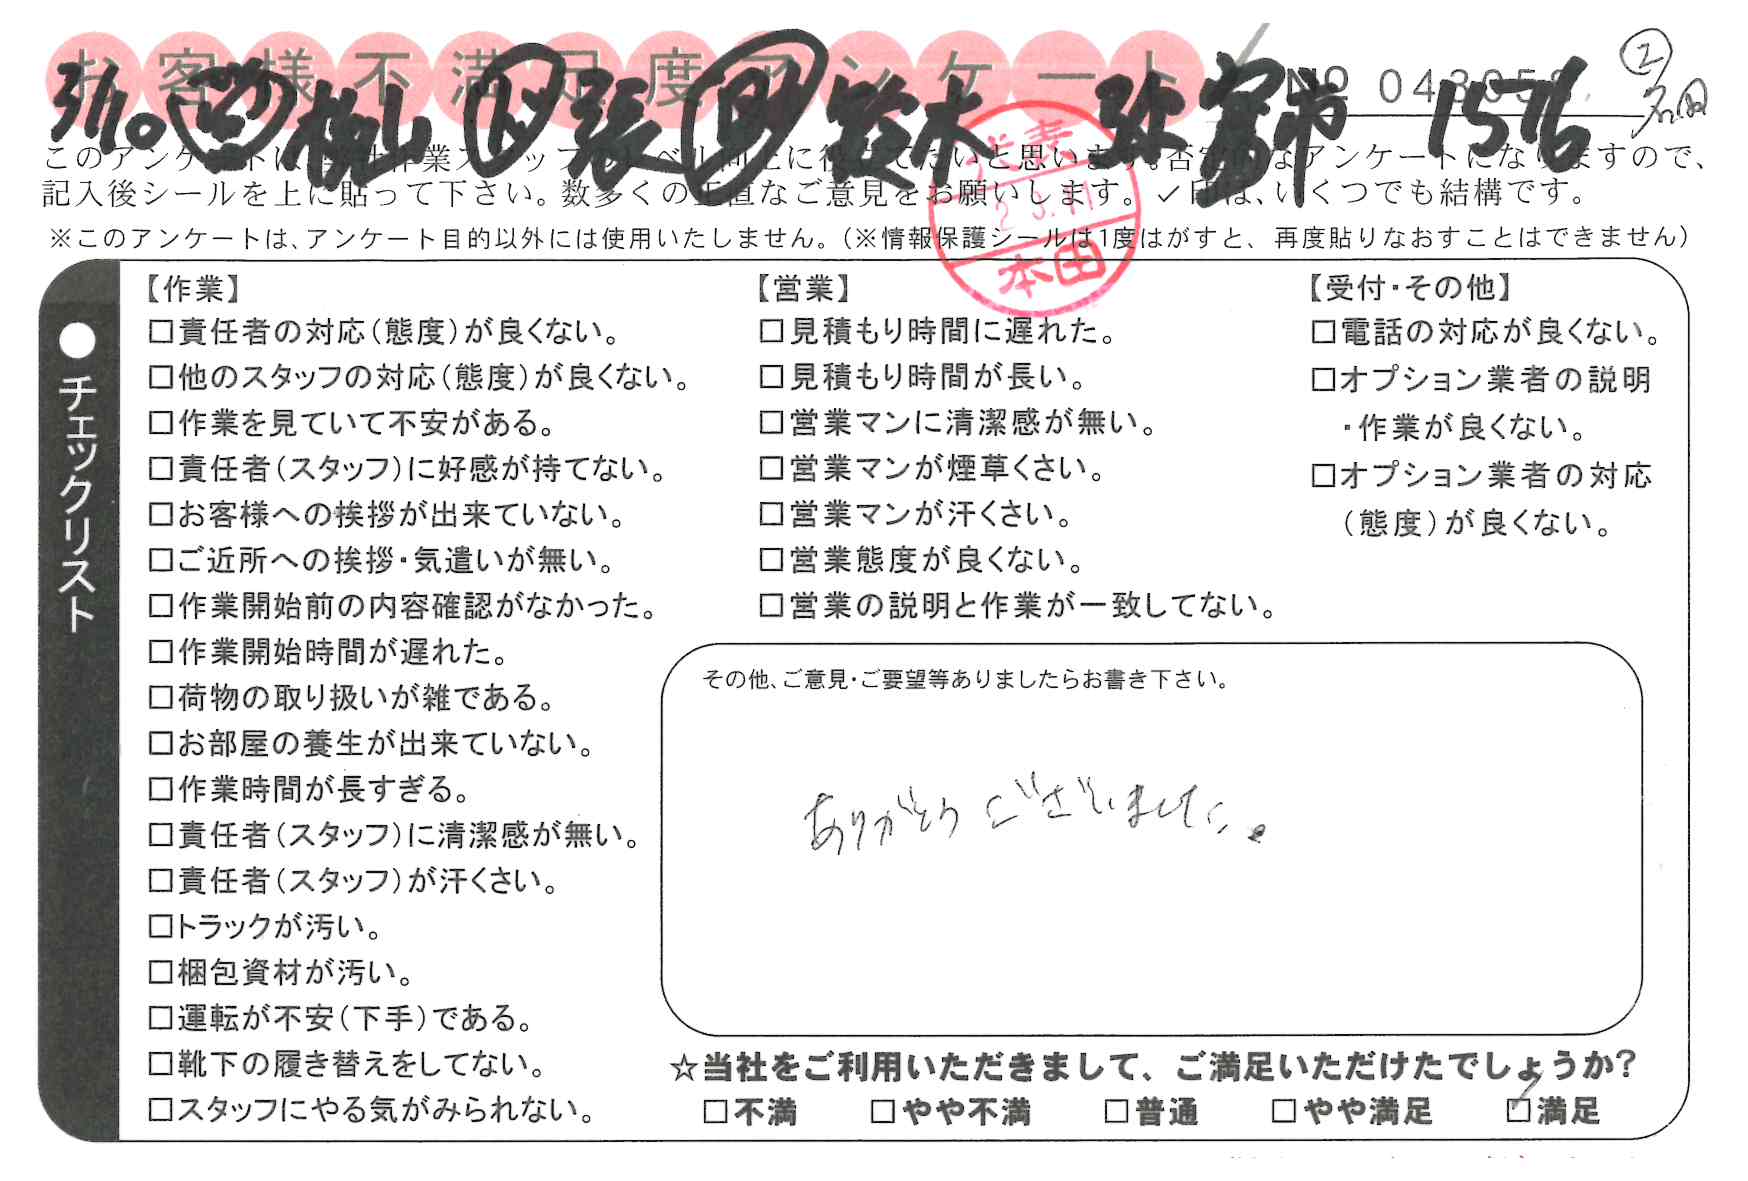 お客様不満足度アンケート
3/10 桃山 張 鈴木 弥富市 1576 ②名田
No
このアンケートは、
記入後シールを上に貼って下さい。数多くの正直なご意見をお願いします。✓印は、いくつでも結構です。
※このアンケートは、アンケート目的以外には使用いたしません。（※情報保護シールは1度はがすと、再度貼りなおすことはできません）
本田
●チェックリスト
【作業】
□責任者の対応（態度）が良くない。
□他のスタッフの対応（態度）が良くない。
□作業を見ていて不安がある。
□責任者（スタッフ）に好感が持てない。
□お客様への挨拶が出来ていない。
□ご近所への挨拶・気遣いが無い。
□作業開始前の内容確認がなかった。
□作業開始時間が遅れた。
□荷物の取り扱いが雑である。
□お部屋の養生が出来ていない。
□作業時間が長すぎる。
□責任者（スタッフ）に清潔感が無い。
□責任者（スタッフ）が汗くさい。
□トラックが汚い。
□梱包資材が汚い。
□運転が不安（下手）である。
□靴下の履き替えをしてない。
□スタッフにやる気がみられない。
【営業】
□見積もり時間に遅れた。
□見積もり時間が長い。
□営業マンに清潔感が無い。
□営業マンが煙草くさい。
□営業マンが汗くさい。
□営業態度が良くない。
□営業の説明と作業が一致してない。
【受付・その他】
□電話の対応が良くない。
□オプション業者の説明
・作業が良くない。
□オプション業者の対応
（態度）が良くない。
その他、ご意見・ご要望等ありましたらお書き下さい。
ありがとうございました。
☆当社をご利用いただきまして、ご満足いただけたでしょうか？
□不満 □やや不満 □普通 □やや満足 ☑満足